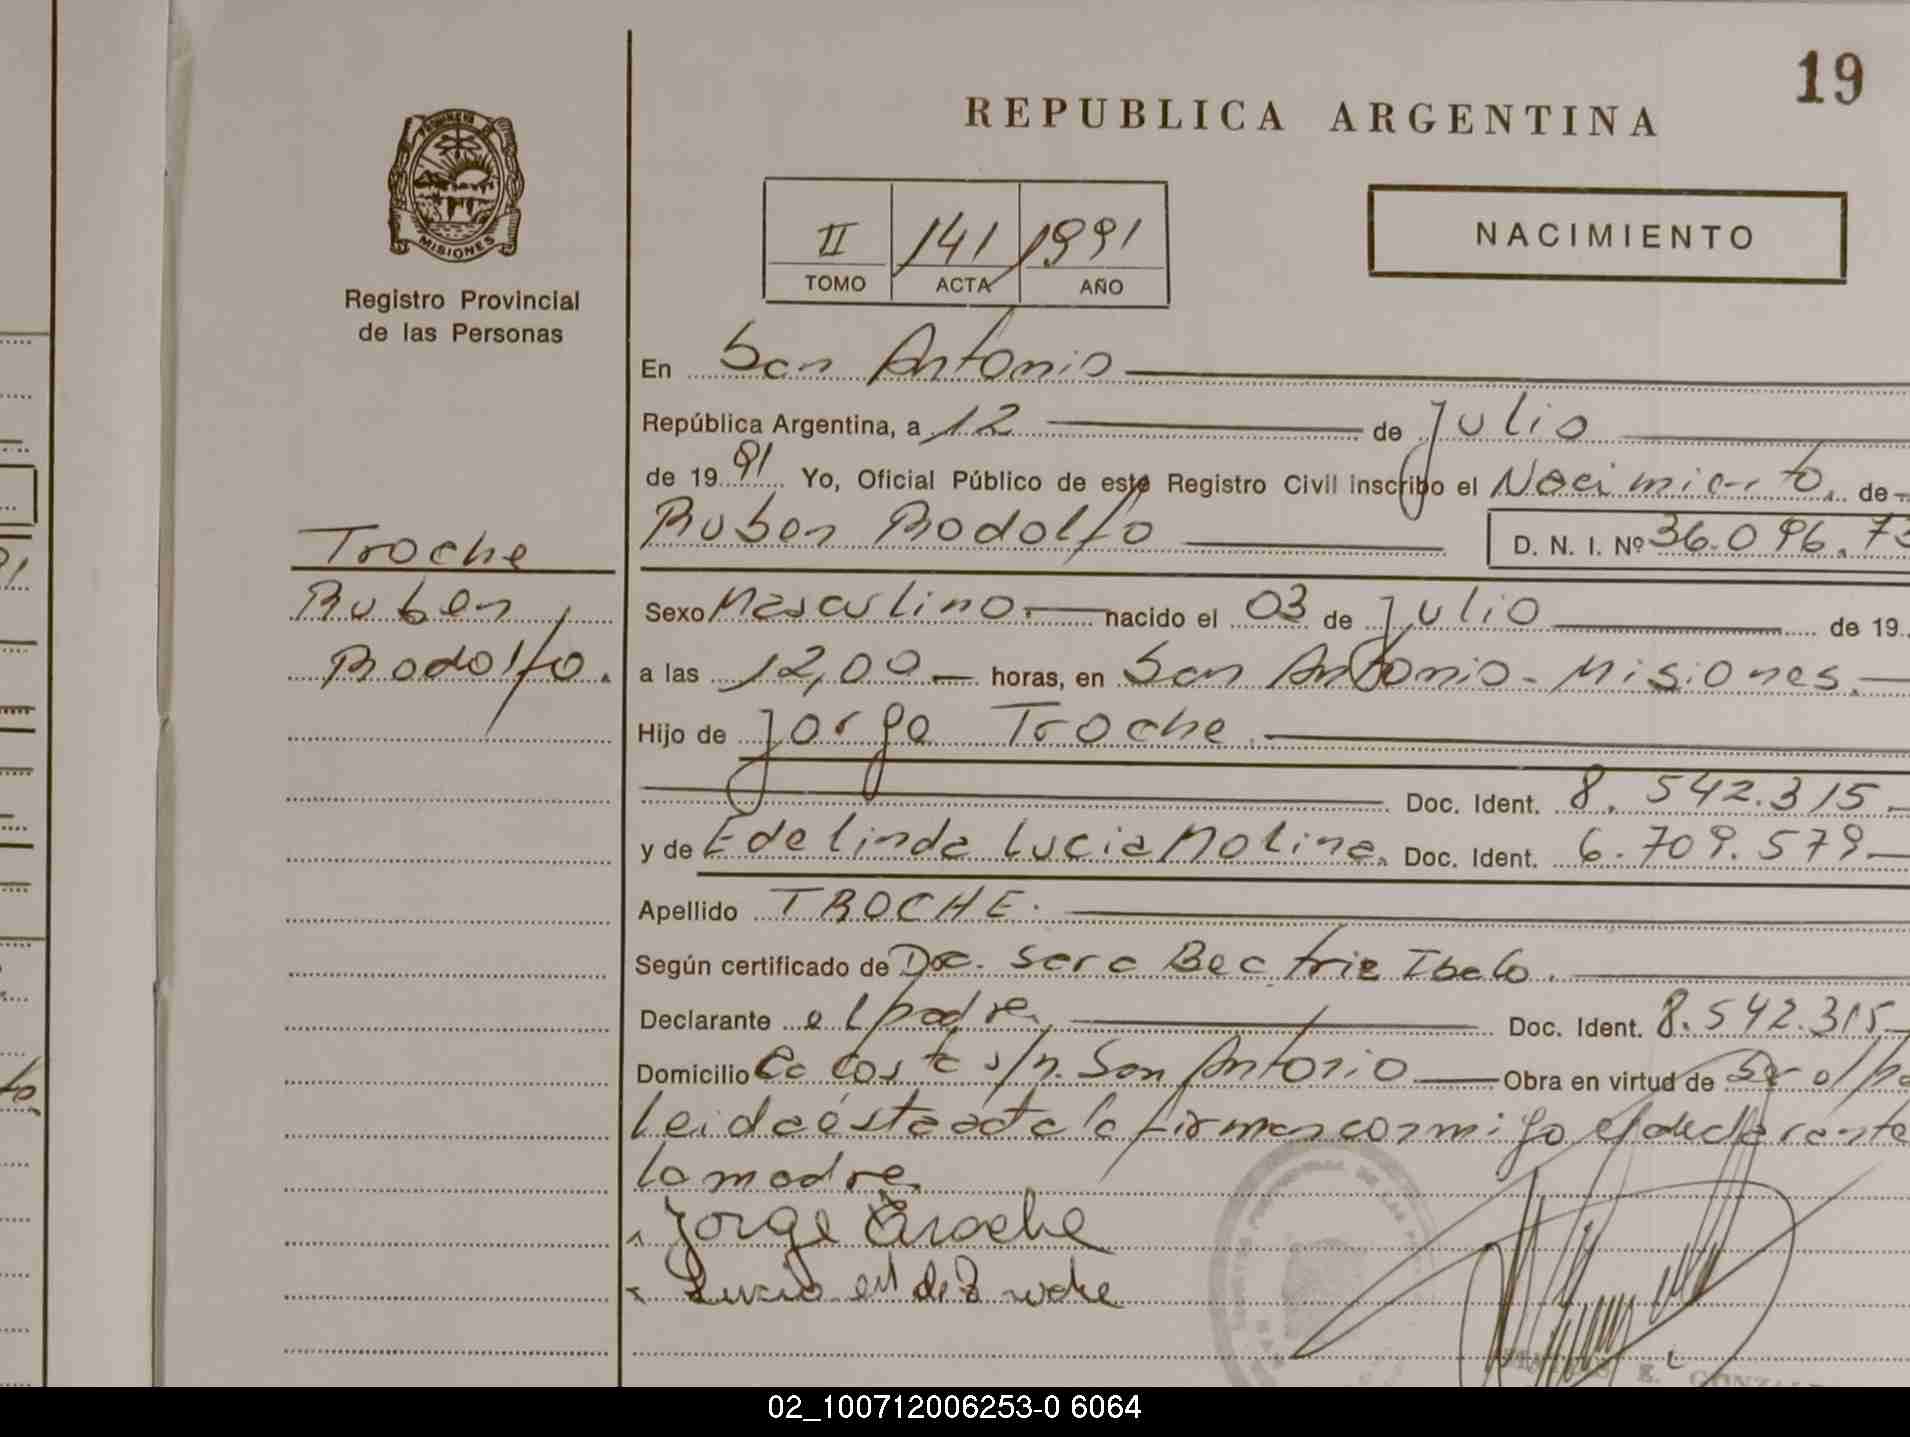 19
REPUBLICA ARGENTINA
PROVINCIA DE
MISIONES
Registro Provincial
de las Personas
II 141 1991
TOMO ACTA AÑO
NACIMIENTO
En San Antonio
República Argentina, a 12 de Julio
de 19 91 Yo, Oficial Público de este Registro Civil inscribo el Nacimiento de
Ruben Rodolfo D. N. I. Nº 36.096.73
Troche
Ruben
Rodolfo.
Sexo Masculino. nacido el 03 de Julio de 19
a las 12,00 horas, en San Antonio - Misiones.
Hijo de Jorge Troche.
Doc. Ident. 8.542.315
y de Edelinda Lucia Molina. Doc. Ident. 6.709.579
Apellido TROCHE.
Según certificado de Doc. Sara Beatriz
Declarante el padre Doc. Ident. 8.542.315
Domicilio s/n. San Antonio Obra en virtud de Ser el pa
Leida ésta acta la firman conmigo el declarante
la madre
Jorge Troche
E. GONZAL
02_100712006253-0 6064